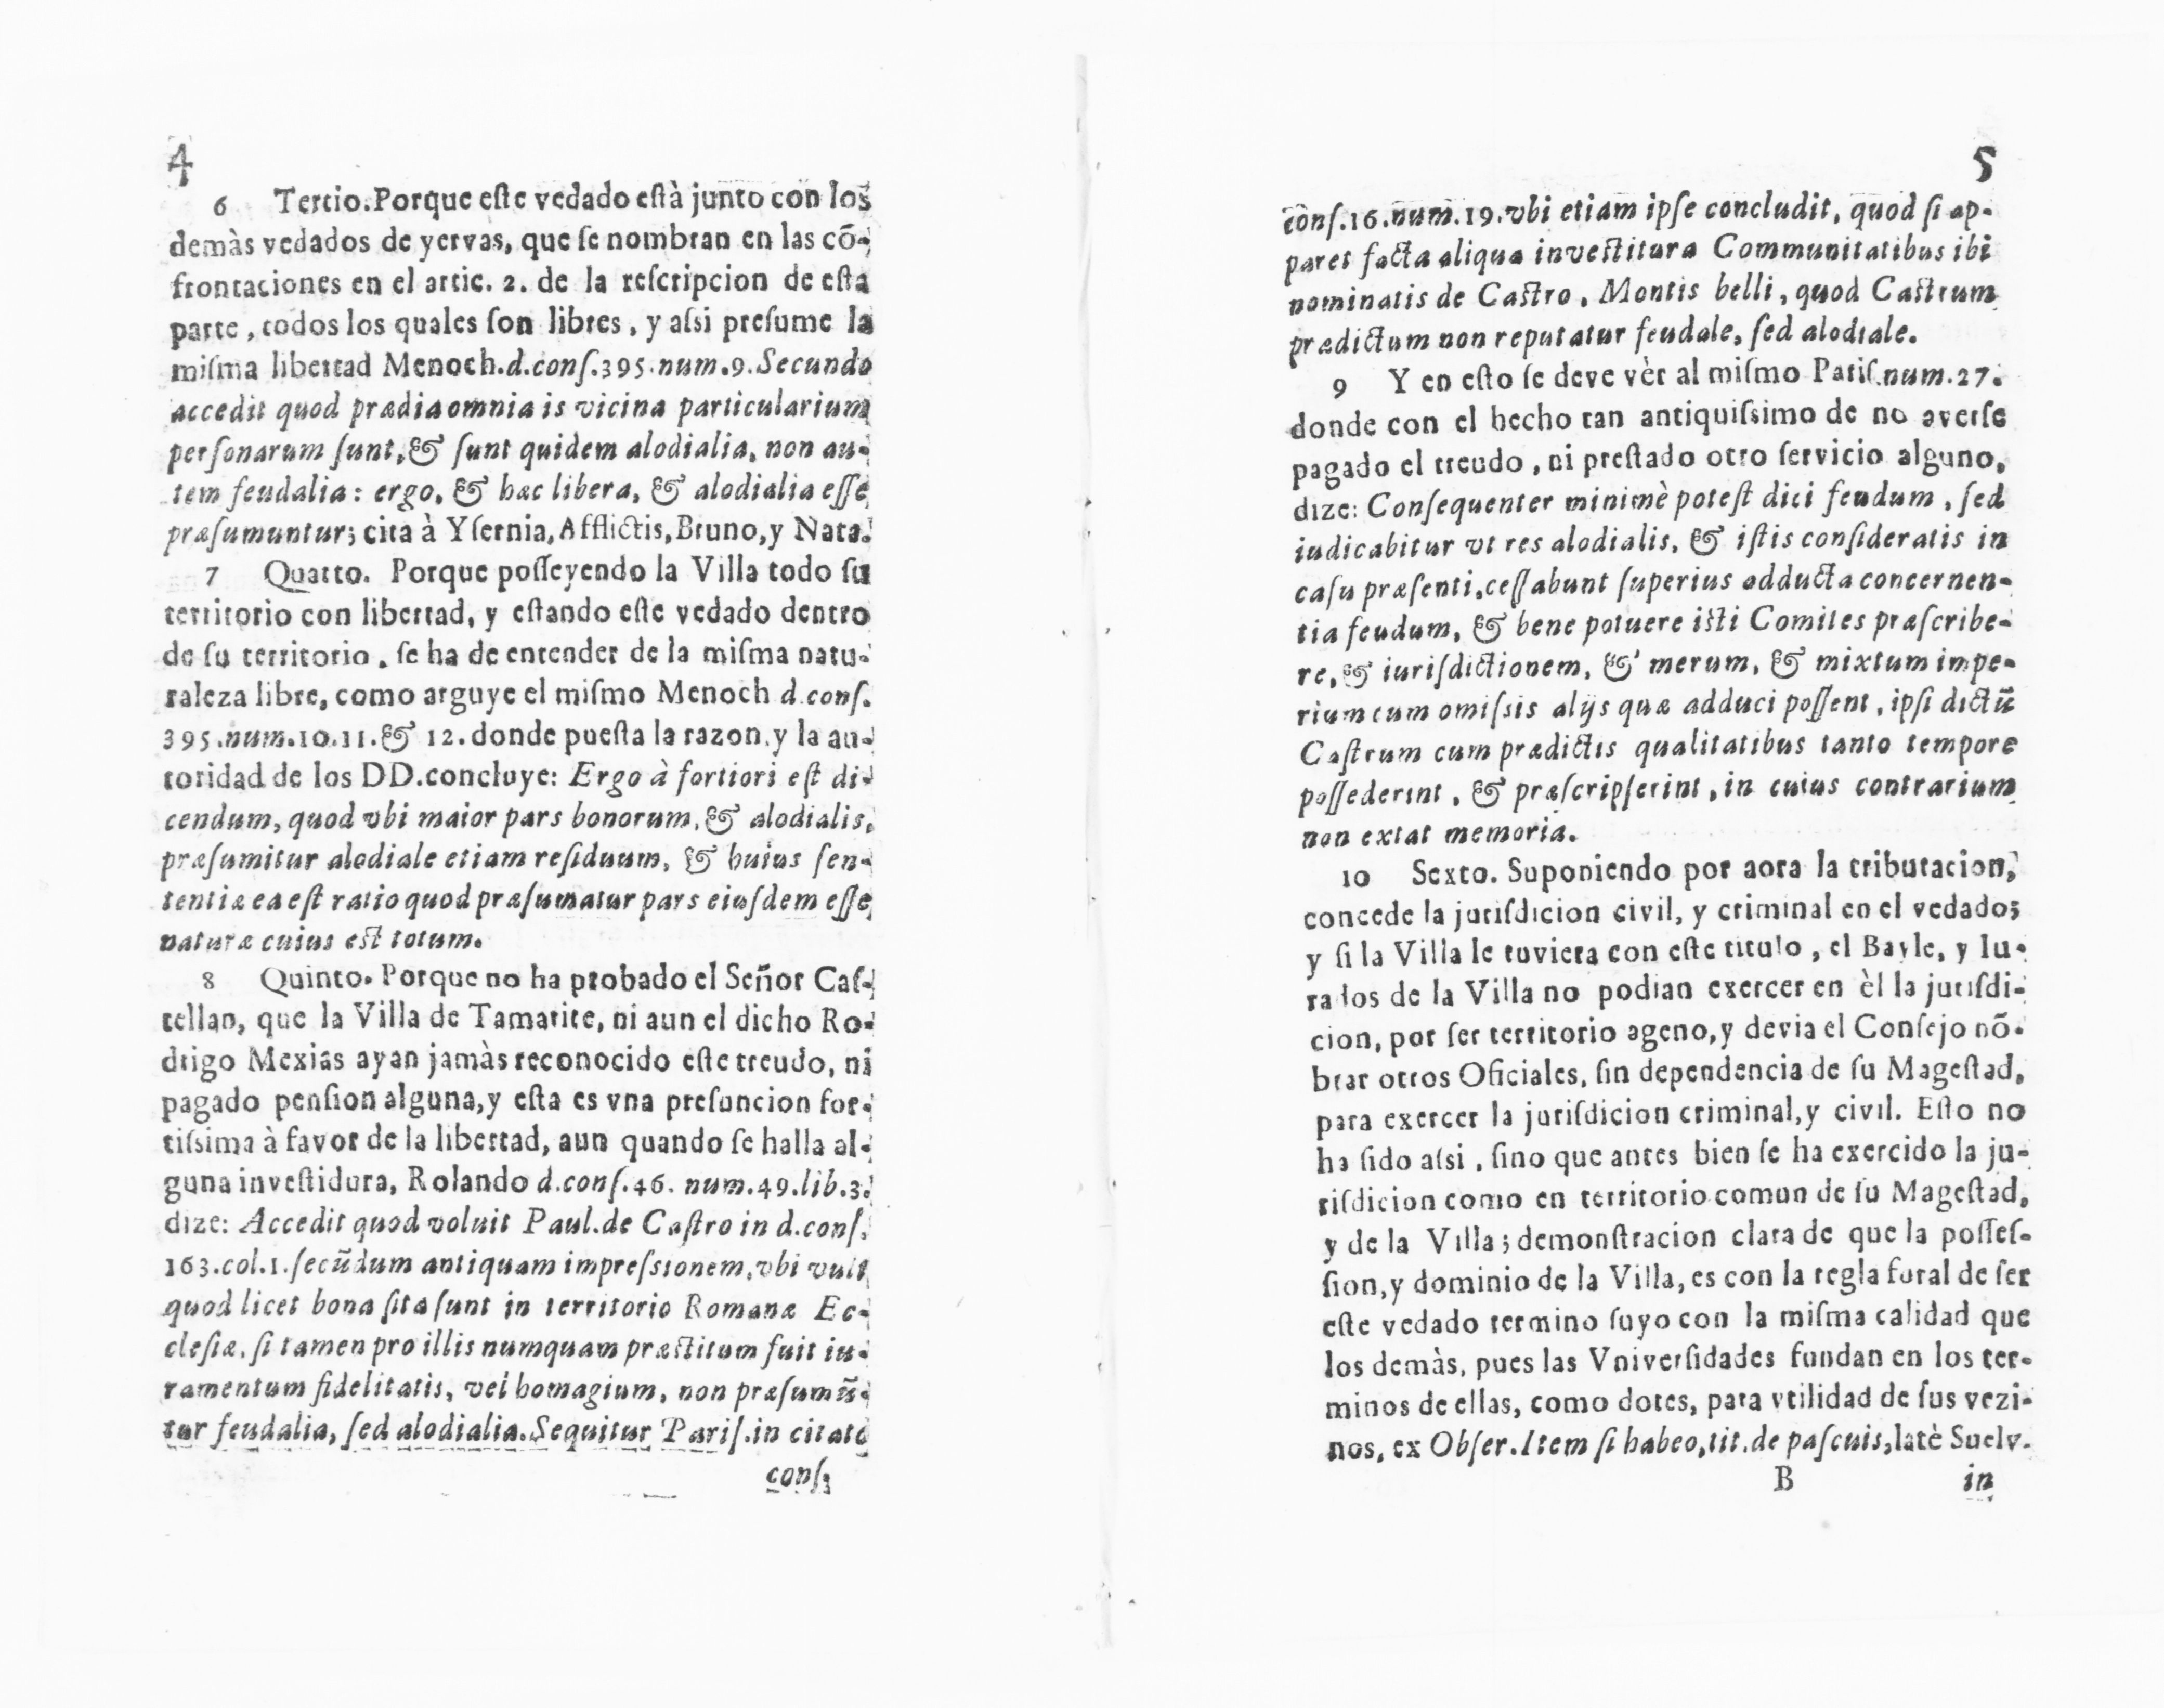 4
6 Tertio. Porque este vedado està junto con los
demàs vedados de yervas, que ſe nombran en las cõ-
frontaciones en el artic. 2. de la reſcripcion de eſta
parte, todos los quales ſon libres, y aſsi preſume la
miſma libertad Menoch. d. conſ. 395. num. 9. Secundo
accedit quod prædia omnia is vicina particularium
perſonarum ſunt, & ſunt quidem alodialia, non au-
tem feudalia: ergo, & hæc libera, & alodialia eſſe
præſumuntur; cita à Yſernia, Afflictis, Bruno, y Nata.
7 Quarto. Porque poſſeyendo la Villa todo ſu
territorio con libertad, y eſtando eſte vedado dentro
de ſu territorio, ſe ha de entender de la miſma natu-
raleza libre, como arguye el miſmo Menoch d. conſ.
395. num. 10. 11. & 12. donde pueſta la razon, y la au-
toridad de los DD. concluye: Ergo à fortiori eſt di-
cendum, quod vbi maior pars bonorum, & alodialis,
præſumitur alodiale etiam reſiduum, & huius ſen-
tentiæ ea eſt ratio quod præſumatur pars eiuſdem eſſe
naturæ cuius eſt totum.
8 Quinto. Porque no ha probado el Señor Caſ-
tellan, que la Villa de Tamarite, ni aun el dicho Ro-
drigo Mexias ayan jamàs reconocido eſte treudo, ni
pagado penſion alguna, y eſta es vna preſuncion for-
tiſsima à favor de la libertad, aun quando ſe halla al-
guna inveſtidura, Rolando d. conſ. 46. num. 49. lib. 3.
dize: Accedit quod voluit Paul. de Caſtro in d. conſ.
163. col. 1. ſecũdum antiquam impreſsionem, vbi vult
quod licet bona ſita ſunt in territorio Romanæ Ec-
cleſiæ, ſi tamen pro illis numquam præſtitum fuit iu-
ramentum fidelitatis, vel homagium, non præſumũ-
tur feudalia, ſed alodialia. Sequitur Pariſ. in citato
conſ.
5
conſ. 16. num. 19. vbi etiam ipſe concludit, quod ſi ap-
paret facta aliqua inveſtitura Communitatibus ibi
nominatis de Caſtro, Montis belli, quod Caſtrum
prædictum non reputatur feudale, ſed alodiale.
9 Y en eſto ſe deve vèr al miſmo Pariſ. num. 27.
donde con el hecho tan antiquiſsimo de no averſe
pagado el treudo, ni preſtado otro ſervicio alguno,
dize: Conſequenter minimè poteſt dici feudum, ſed
iudicabitur vt res alodialis, & iſtis conſideratis in
caſu præſenti, ceſſabunt ſuperius adducta concernen-
tia feudum, & bene potuere iſti Comites præſcribe-
re, & iuriſdictionem, & merum, & mixtum impe-
rium cum omiſsis alijs quæ adduci poſſent, ipſi dictũ
Caſtrum cum prædictis qualitatibus tanto tempore
poſſederint, & præſcripſerint, in cuius contrarium
non extat memoria.
10 Sexto. Suponiendo por aora la tributacion,
concede la juriſdicion civil, y criminal en el vedado;
y ſi la Villa le tuviera con eſte titulo, el Bayle, y Iu-
rados de la Villa no podian exercer en èl la juriſdi-
cion, por ſer territorio ageno, y devia el Conſejo nõ-
brar otros Oficiales, ſin dependencia de ſu Mageſtad,
para exercer la juriſdicion criminal, y civil. Eſto no
ha ſido aſsi, ſino que antes bien ſe ha exercido la ju-
riſdicion como en territorio comun de ſu Mageſtad,
y de la Villa; demonſtracion clara de que la poſſeſ-
ſion, y dominio de la Villa, es con la regla foral de ſer
eſte vedado termino ſuyo con la miſma calidad que
los demàs, pues las Vniverſidades fundan en los ter-
minos de ellas, como dotes, para vtilidad de ſus vezi-
nos, ex Obſer. Item ſi habeo, tit. de paſcuis, latè Suelv.
B in